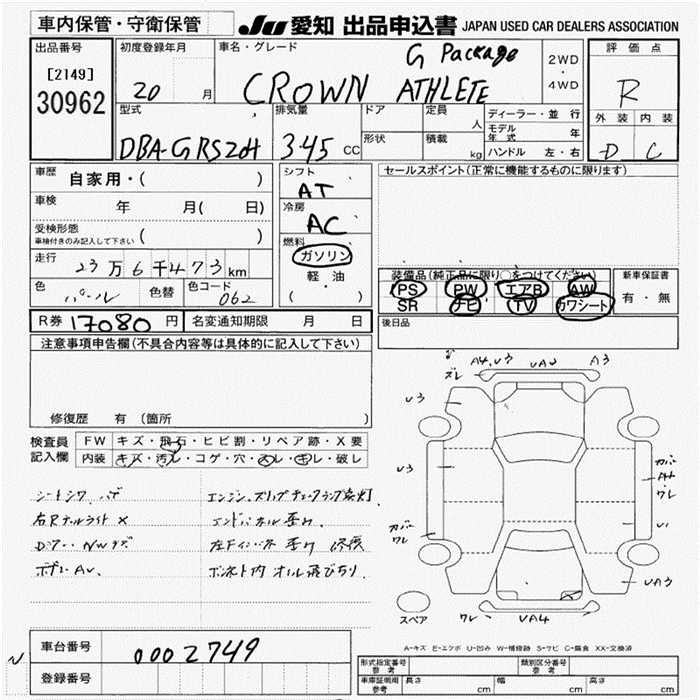 車内保管・守衛保管
JU 愛知 出品申込書 JAPAN USED CAR DEALERS ASSOCIATION
出品番号
[2149]
30962
初度登録年月
20 月
車名・グレード
G Package
CROWN ATHLETE
2WD
・
4WD
評価点
R
外装 内装
D C
型式
DBA-GRS204
排気量
345 CC
ドア
形状
定員
人
積載
kg
ディーラー・並行
モデル年式 年
ハンドル 左・右
車歴 自家用・( )
車検 年 月( 日)
受検形態
車検付きのみ記入して下さい ( )
走行 23万6千473km
色 パール 色替 色コード 062
R券 17080円 名変通知期限 月 日
シフト
AT
冷房
AC
燃料
ガソリン
軽・油
( )
セールスポイント(正常に機能するものに限ります)
装備品(純正品に限り○をつけてください)
PS PW エアB AW
SR ナビ TV カワシート
新車保証書
有・無
後日品
注意事項申告欄(不具合内容等は具体的に記入して下さい)
修復歴 有(箇所 )
検査員
記入欄
FW キズ・飛石・ヒビ割・リペア跡・X要
内装 キズ・汚レ・コゲ・穴・スレ・キレ・破レ
エンジン、スリップチェックランプ点灯
ボデーAU.
ズレ A4.U3 UA2 A3
U3
U3
カバーワレ
U1
UA3
ワレ UA4
スペア
A-キズ E-エクボ U-凹み W-補修跡 S-サビ C-腐食 XX-交換済
車台番号 0002749
登録番号
形式指定番号
参考
類別区分番号
参考
車庫証明用
参考
長さ cm 幅 cm 高さ cm